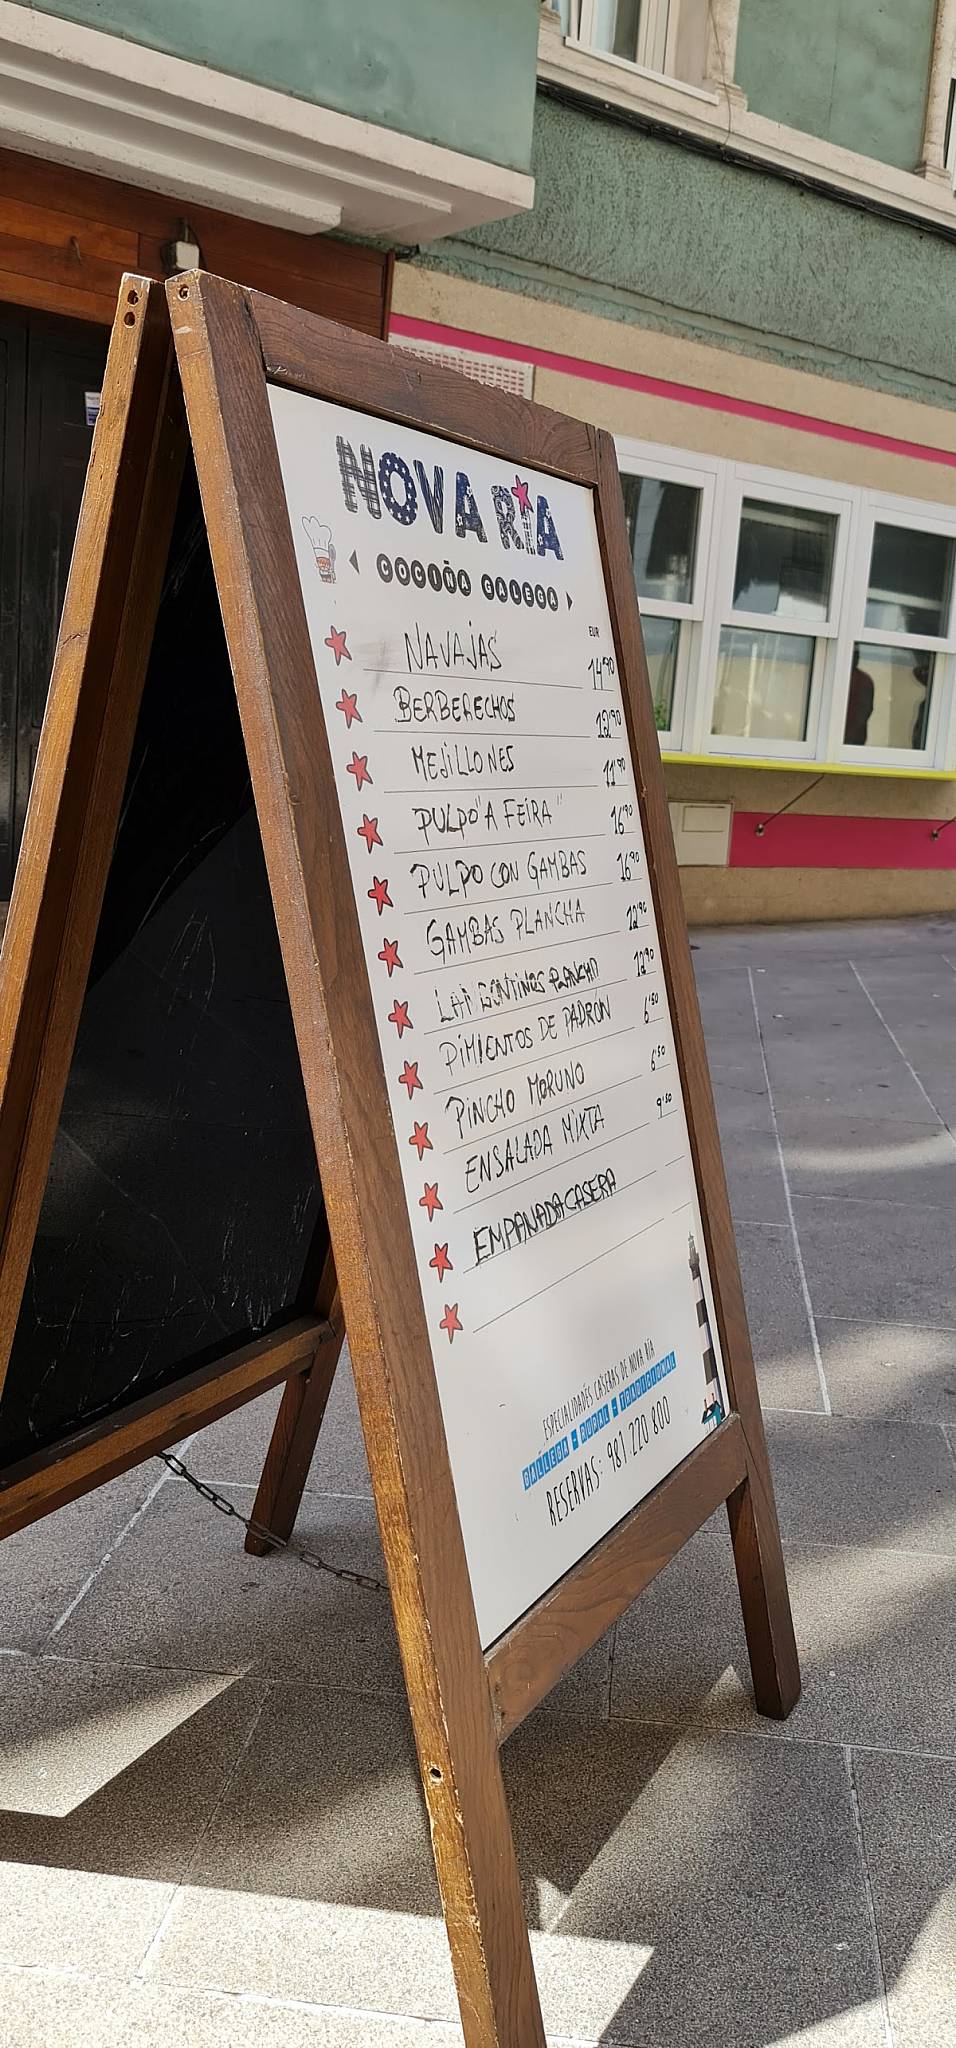 NOVA RÍA
COCIÑA GALEGA
EUR
NAVAJAS 14'90
BERBERECHOS 12'90
MEJILLONES 11'90
PULPO "A FEIRA" 16'90
PULPO CON GAMBAS 16'90
GAMBAS PLANCHA 12'90
PLANCHA 12'90
PIMIENTOS DE PADRON 6'50
PINCHO MORUNO 6'50
ENSALADA MIXTA 9'50
EMPANADA CASERA
ESPECIALIDADES CASERAS DE NOVA RÍA
GALLEGA - RURAL - TRADICIONAL
RESERVAS: 981 220 800